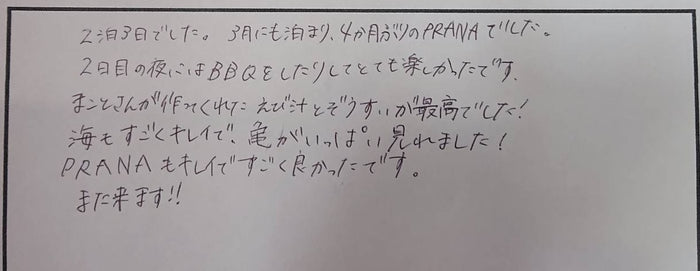 2泊3日でした。3月にも泊まり、4か月ぶりのPRANAでした。
2日目の夜にはBBQをしたりしてとても楽しかったです。
まことさんが作ってくれた えび汁とぞうすいが最高でした!
海もすごくキレイで、亀がいっぱい見れました!
PRANAもキレイですごく良かったです。
また来ます!!